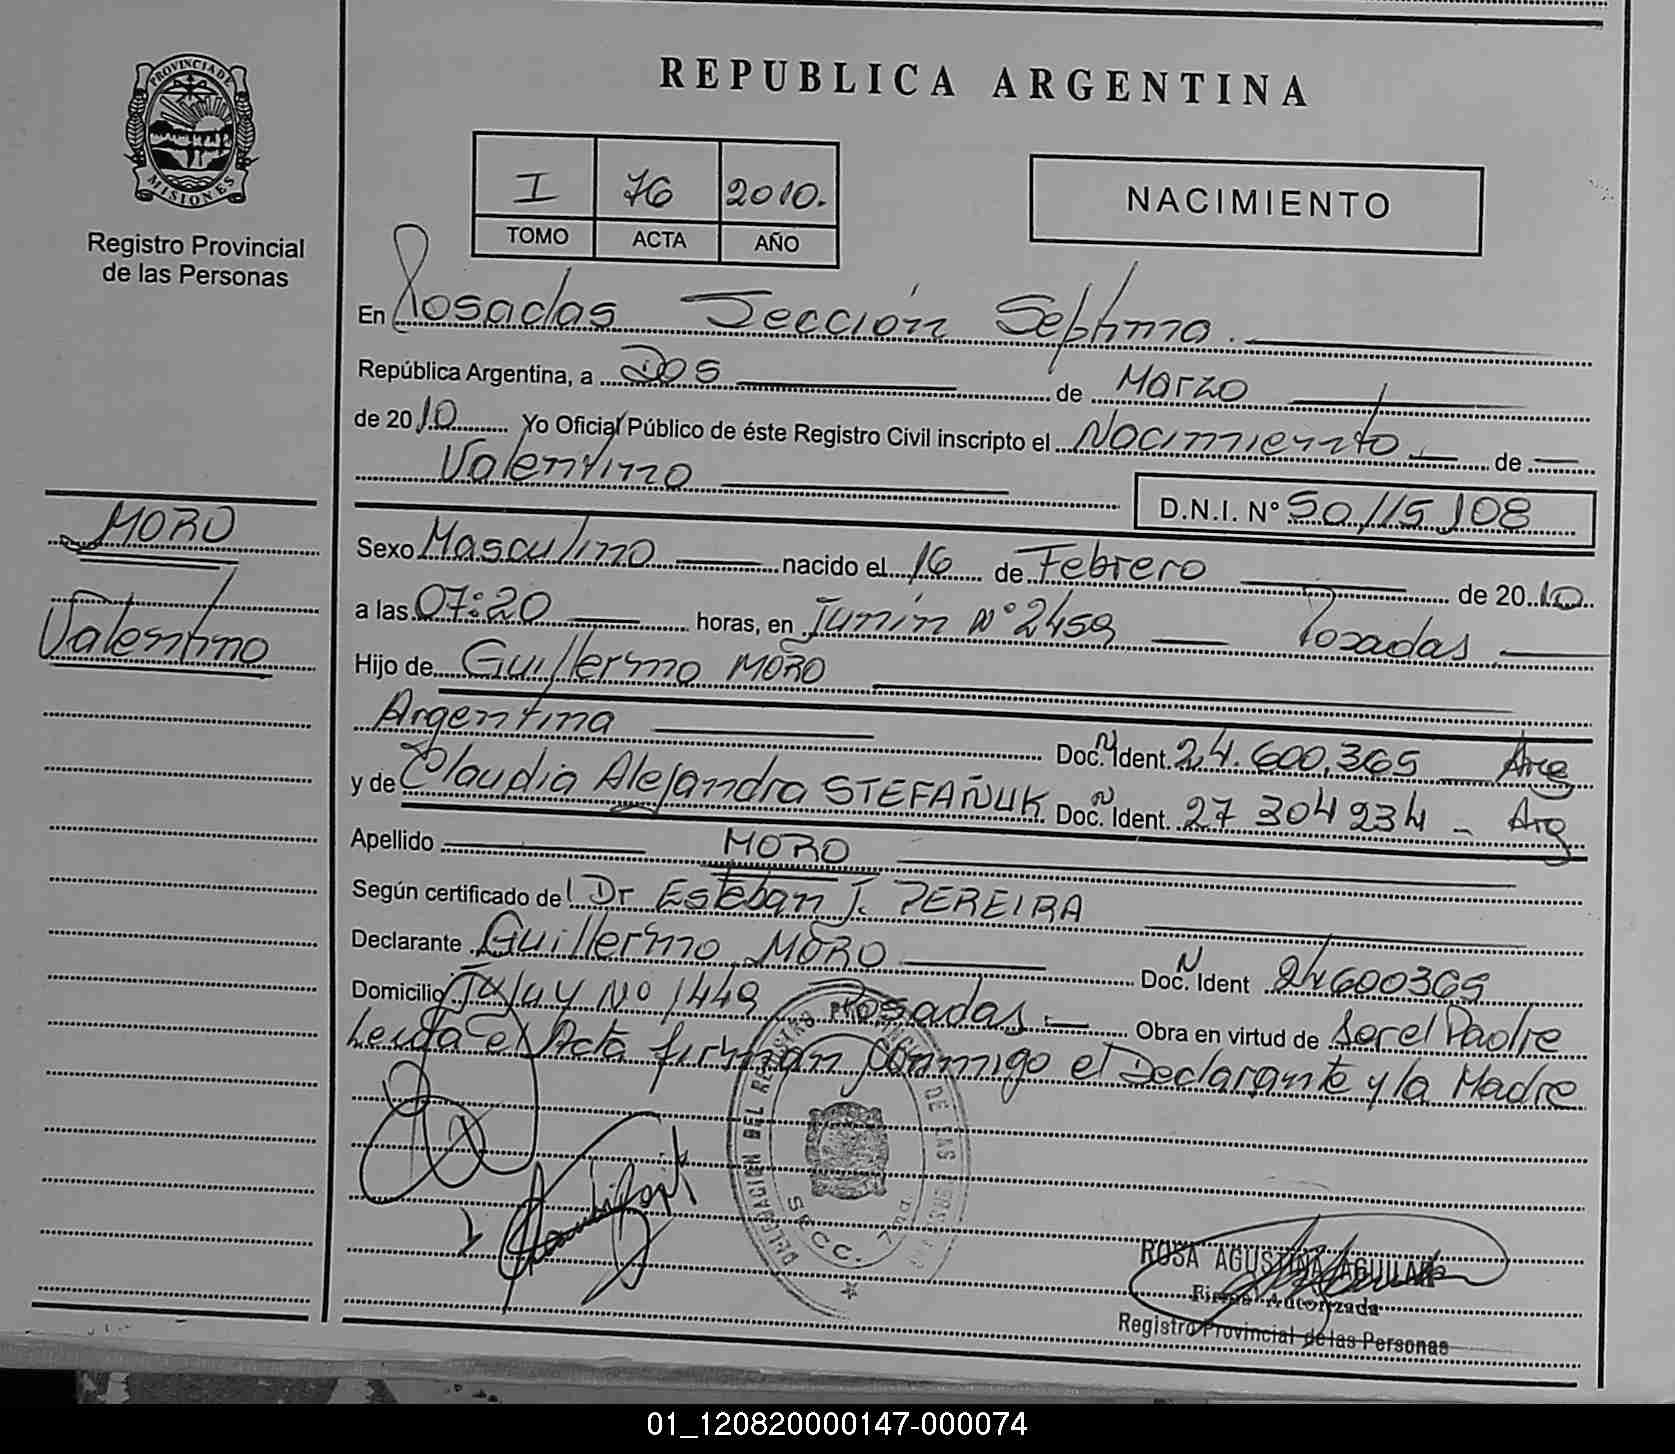 REPUBLICA ARGENTINA
PROVINCIA DE MISIONES
Registro Provincial
de las Personas
I 76 2010.
TOMO ACTA AÑO
NACIMIENTO
En Posadas Sección Septima.
República Argentina, a Dos de Marzo
de 2010 Yo Oficial Público de éste Registro Civil inscripto el Nacimiento de
Valentino
D.N.I. N° 50.115.108
MORO
Valentino
Sexo Masculino nacido el 16 de Febrero de 2010
a las 07:20 horas, en Junín N° 2459 Posadas
Hijo de Guillermo MORO
Argentina Doc. N Ident. 24.600.365 Arg
y de Claudia Alejandra STEFAÑUK Doc. N Ident. 27 304 934 - Arg
Apellido MORO
Según certificado del Dr Esteban J. PEREIRA
Declarante Guillermo MORO Doc. N Ident 24600365
Domicilio Jujuy No 1449 Posadas. Obra en virtud de ser el Padre
Leida el Acta firman conmigo el Declarante y la Madre
DELEGACION DEL REGISTRO DE LAS
SECC. 7
ROSA AGUSTINA AGUILAR
Firma Autorizada
Registro Provincial de las Personas
01_120820000147-000074